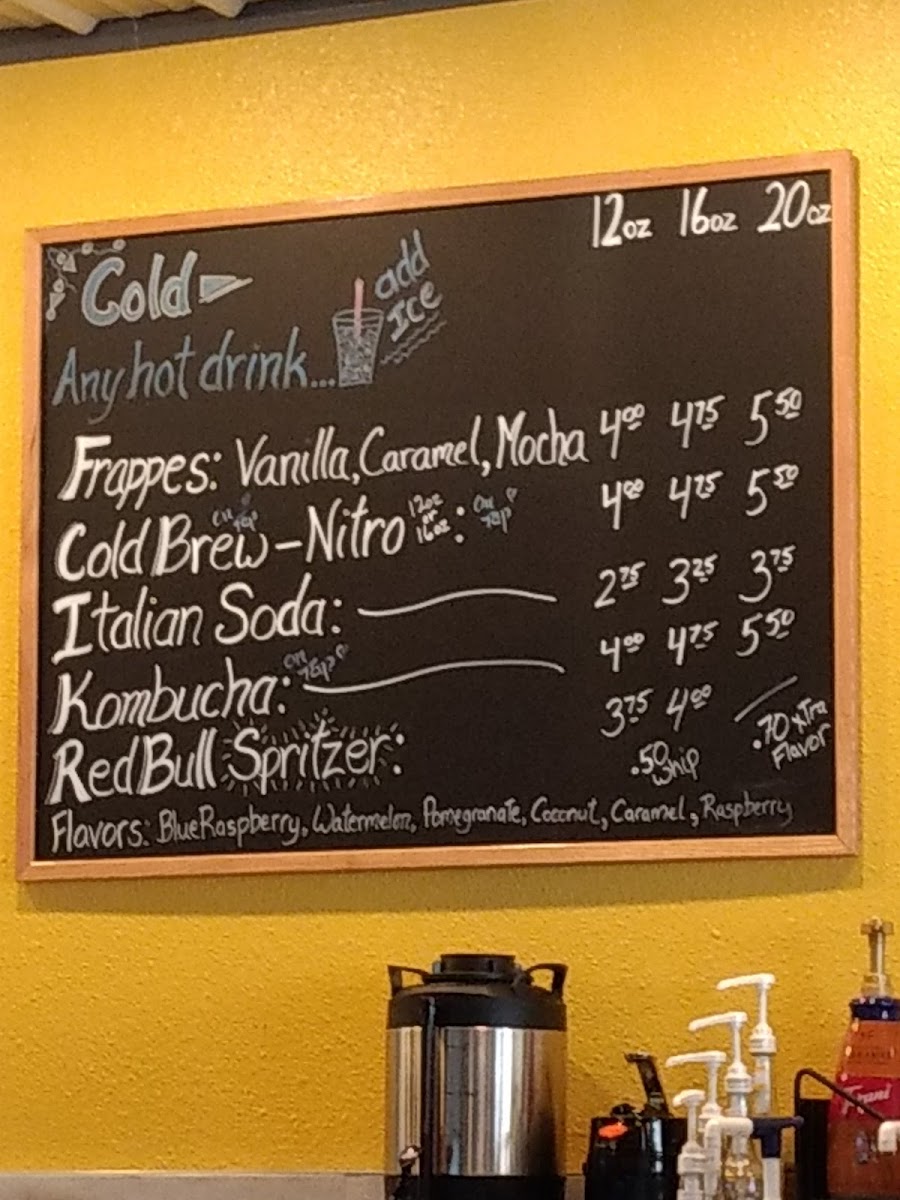 12oz 16oz 20oz
Cold
add
Ice
Any hot drink...
Frappes: Vanilla, Caramel, Mocha 4.00 4.75 5.50
on Tap
Cold Brew - Nitro 12oz or 16oz: on Tap 4.00 4.75 5.50
Italian Soda: 2.75 3.25 3.75
Kombucha: on Tap 4.00 4.75 5.50
Red Bull Spritzer: 3.75 4.00
.50 whip .70 xTra Flavor
Flavors: Blue Raspberry, Watermelon, Pomegranate, Coconut, Caramel, Raspberry
Torani